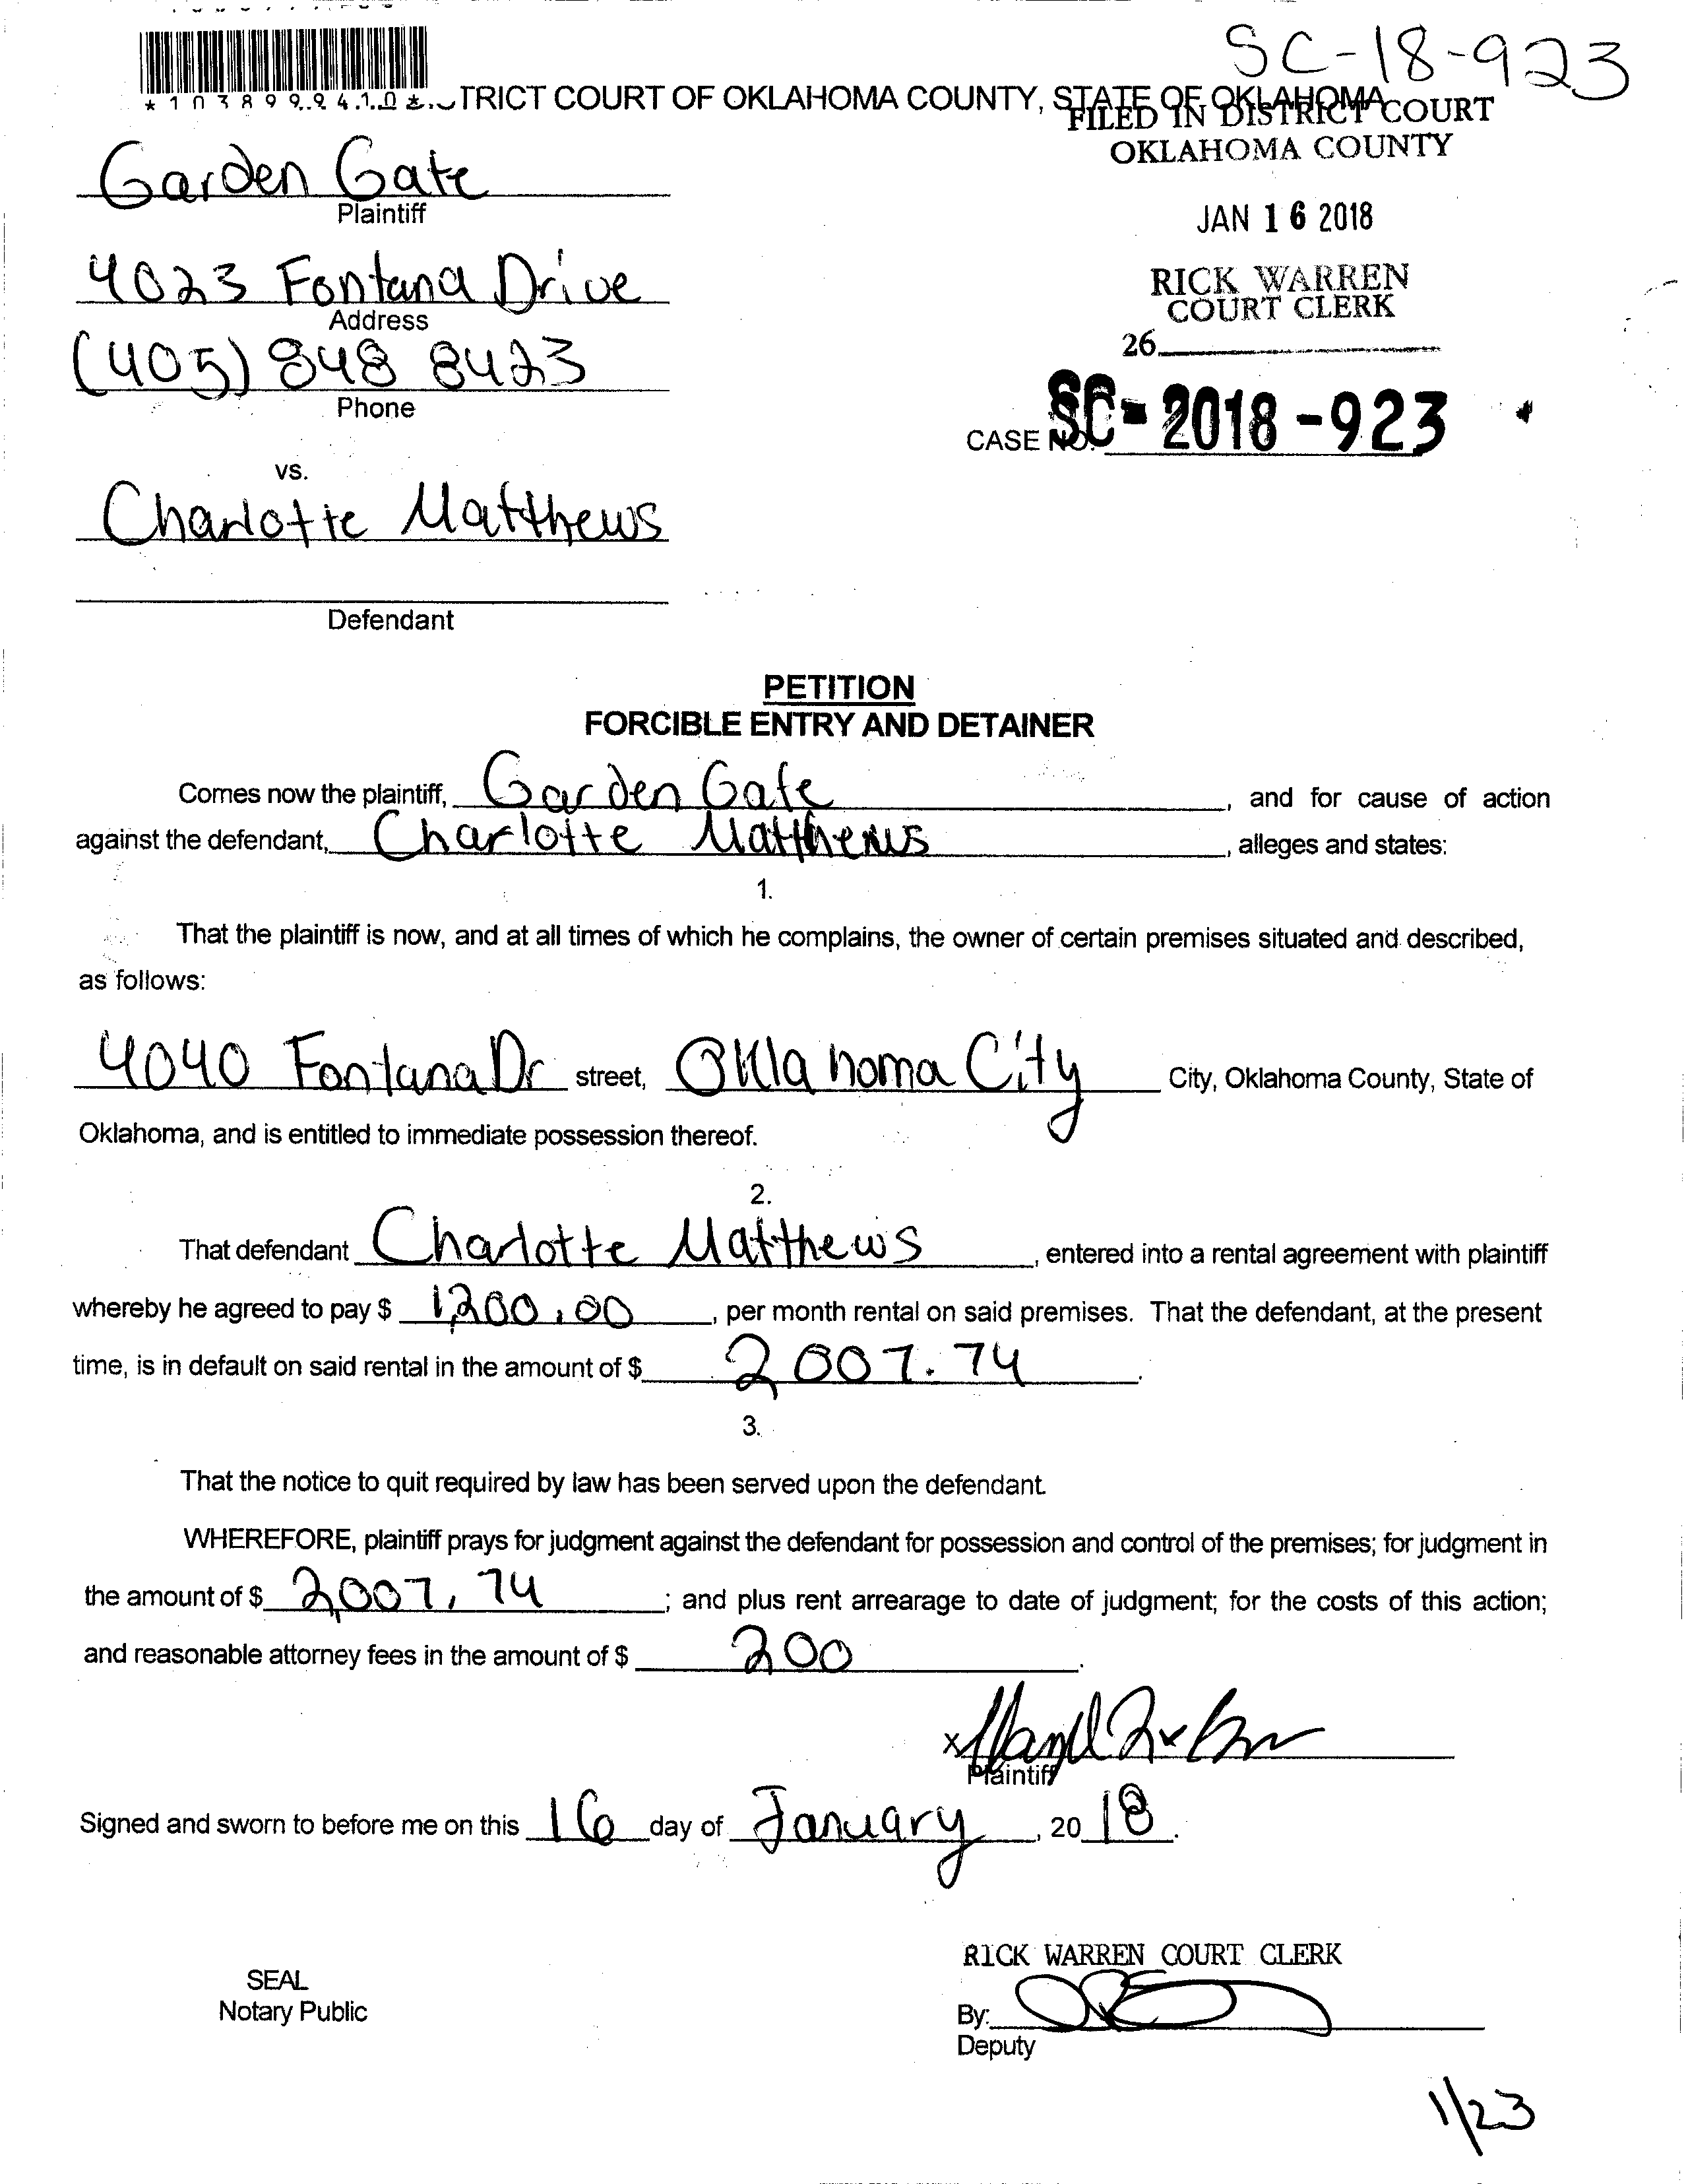 SC-18-923
TRICT COURT OF OKLAHOMA COUNTY, STATE OF OKLAHOMA
FILED IN DISTRICT COURT
OKLAHOMA COUNTY
Garden Gate
Plaintiff
JAN 16 2018
4023 Fontana Drive
Address
RICK WARREN
COURT CLERK
(405) 848 8423
Phone
26
CASE NO. SC-2018-923
vs.
Charlotte Matthews
Defendant
PETITION
FORCIBLE ENTRY AND DETAINER
Comes now the plaintiff, Garden Gate, and for cause of action
against the defendant, Charlotte Matthews, alleges and states:
1.
That the plaintiff is now, and at all times of which he complains, the owner of certain premises situated and described,
as follows:
4040 Fontana Dr street, Oklahoma City City, Oklahoma County, State of
Oklahoma, and is entitled to immediate possession thereof.
2.
That defendant Charlotte Matthews, entered into a rental agreement with plaintiff
whereby he agreed to pay $ 1,200.00, per month rental on said premises. That the defendant, at the present
time, is in default on said rental in the amount of $ 2007.74.
3.
That the notice to quit required by law has been served upon the defendant.
WHEREFORE, plaintiff prays for judgment against the defendant for possession and control of the premises; for judgment in
the amount of $ 2,007.74; and plus rent arrearage to date of judgment; for the costs of this action;
and reasonable attorney fees in the amount of $ 200.
x
Plaintiff
Signed and sworn to before me on this 16 day of January, 2018.
RICK WARREN COURT CLERK
SEAL
Notary Public
By:
Deputy
1/23